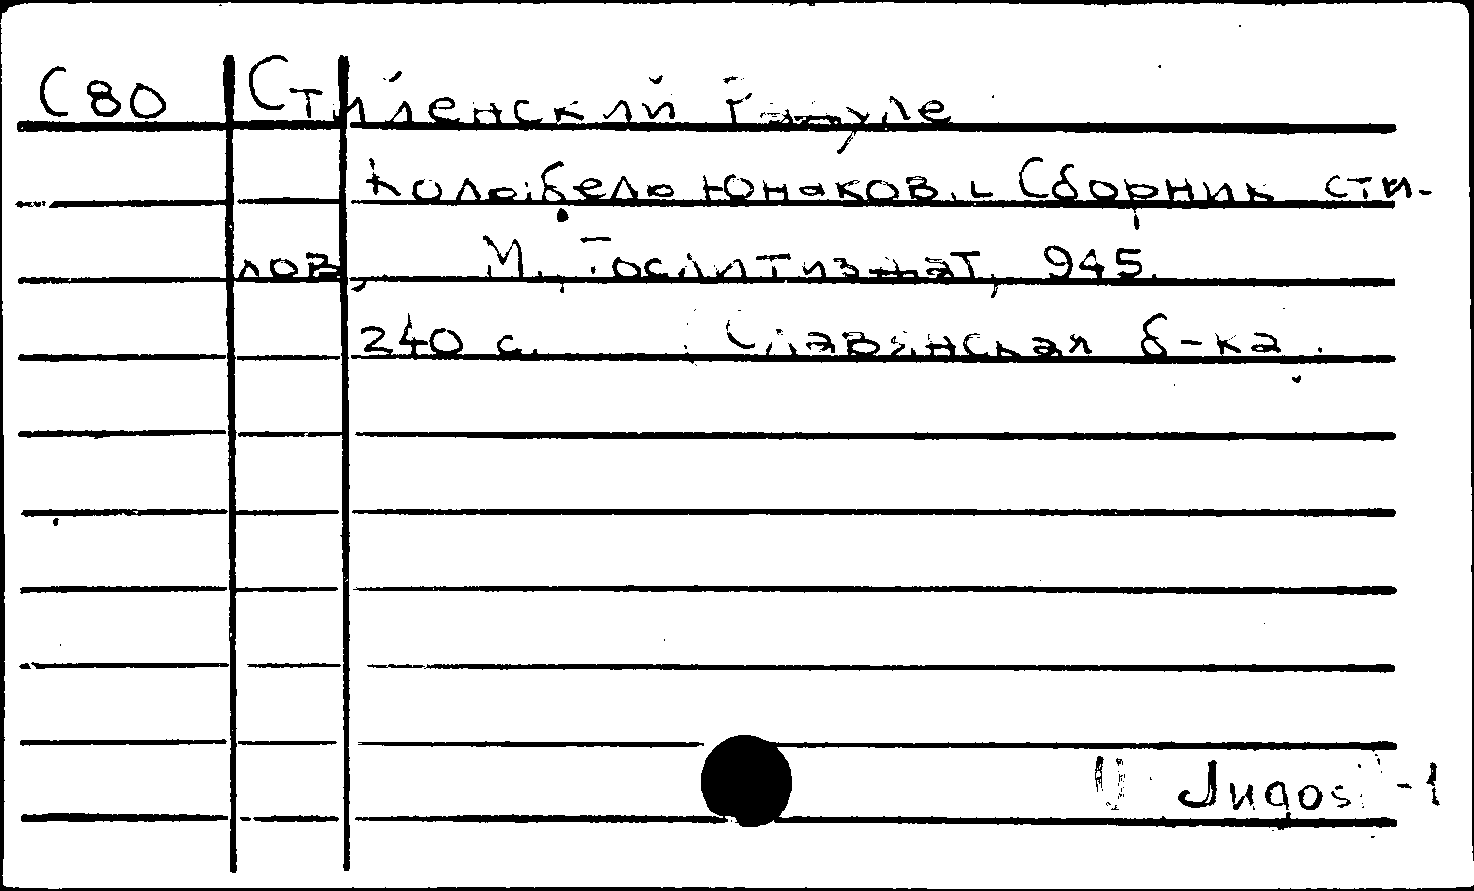 С 80 Стиленский Радуле
Колыбель Юнаков. Сборник сти-
хов, М., Гослитиздат, 945.
240 с. Славянская б-ка.
U Jugosl -1